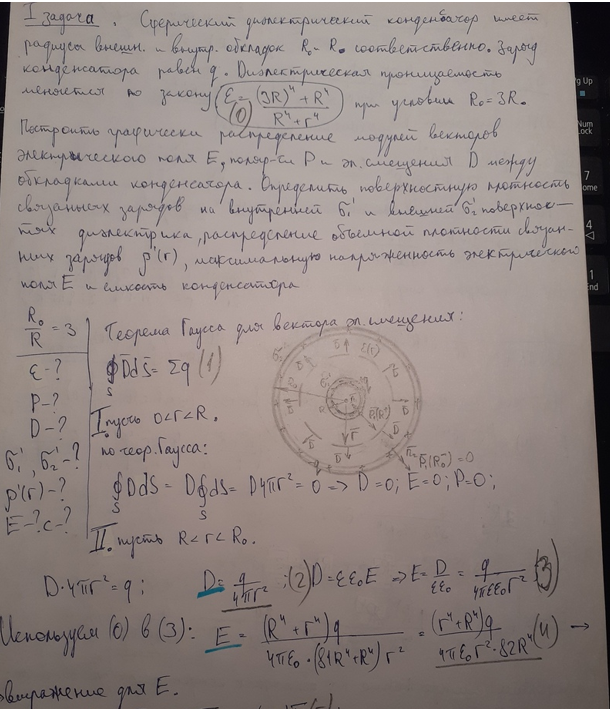 I задача. Сферический диэлектрический конденсатор имеет
радиусы внешн. и внутр. обкладок R₀ = R₀ соответственно. Заряд
конденсатора равен q. Диэлектрическая проницаемость
меняется по закону ε = ((3R)⁴ + R⁴)/(R⁴ + r⁴) (0) при условии R₀ = 3R.
Построить графически распределение модулей векторов
электрического поля E, поляр-ти P и эл. смещения D между
обкладками конденсатора. Определить поверхностную плотность
связанных зарядов на внутренней σ₁' и внешней σ₂' поверхнос-
тях диэлектрика, распределение объемной плотности связан-
ных зарядов ρ'(r), максимальную напряженность электрического
поля E и емкость конденсатора
R₀/R = 3
ε - ?
P - ?
D - ?
σ₁', σ₂' - ?
ρ'(r) - ?
E - ? c - ?
Теорема Гаусса для вектора эл. смещения:
∮_S D̄dS̄ = Σq (1)
I. пусть 0 < r < R.
по теор. Гаусса:
∮_S D̄dS = D∮_S dS = D4πr² = 0 => D = 0; E = 0; P = 0;
P̄(R₀) = 0
II. пусть R < r < R₀.
D·4πr² = q; D = q/(4πr²); (2) D = εε₀E => E = D/(εε₀) = q/(4πεε₀r²) (3)
Используем (0) в (3): E = (R⁴ + r⁴)q/(4πε₀·(81R⁴ + R⁴)r²) = (r⁴ + R⁴)q/(4πε₀r²·82R⁴) (4) →
выражение для E.